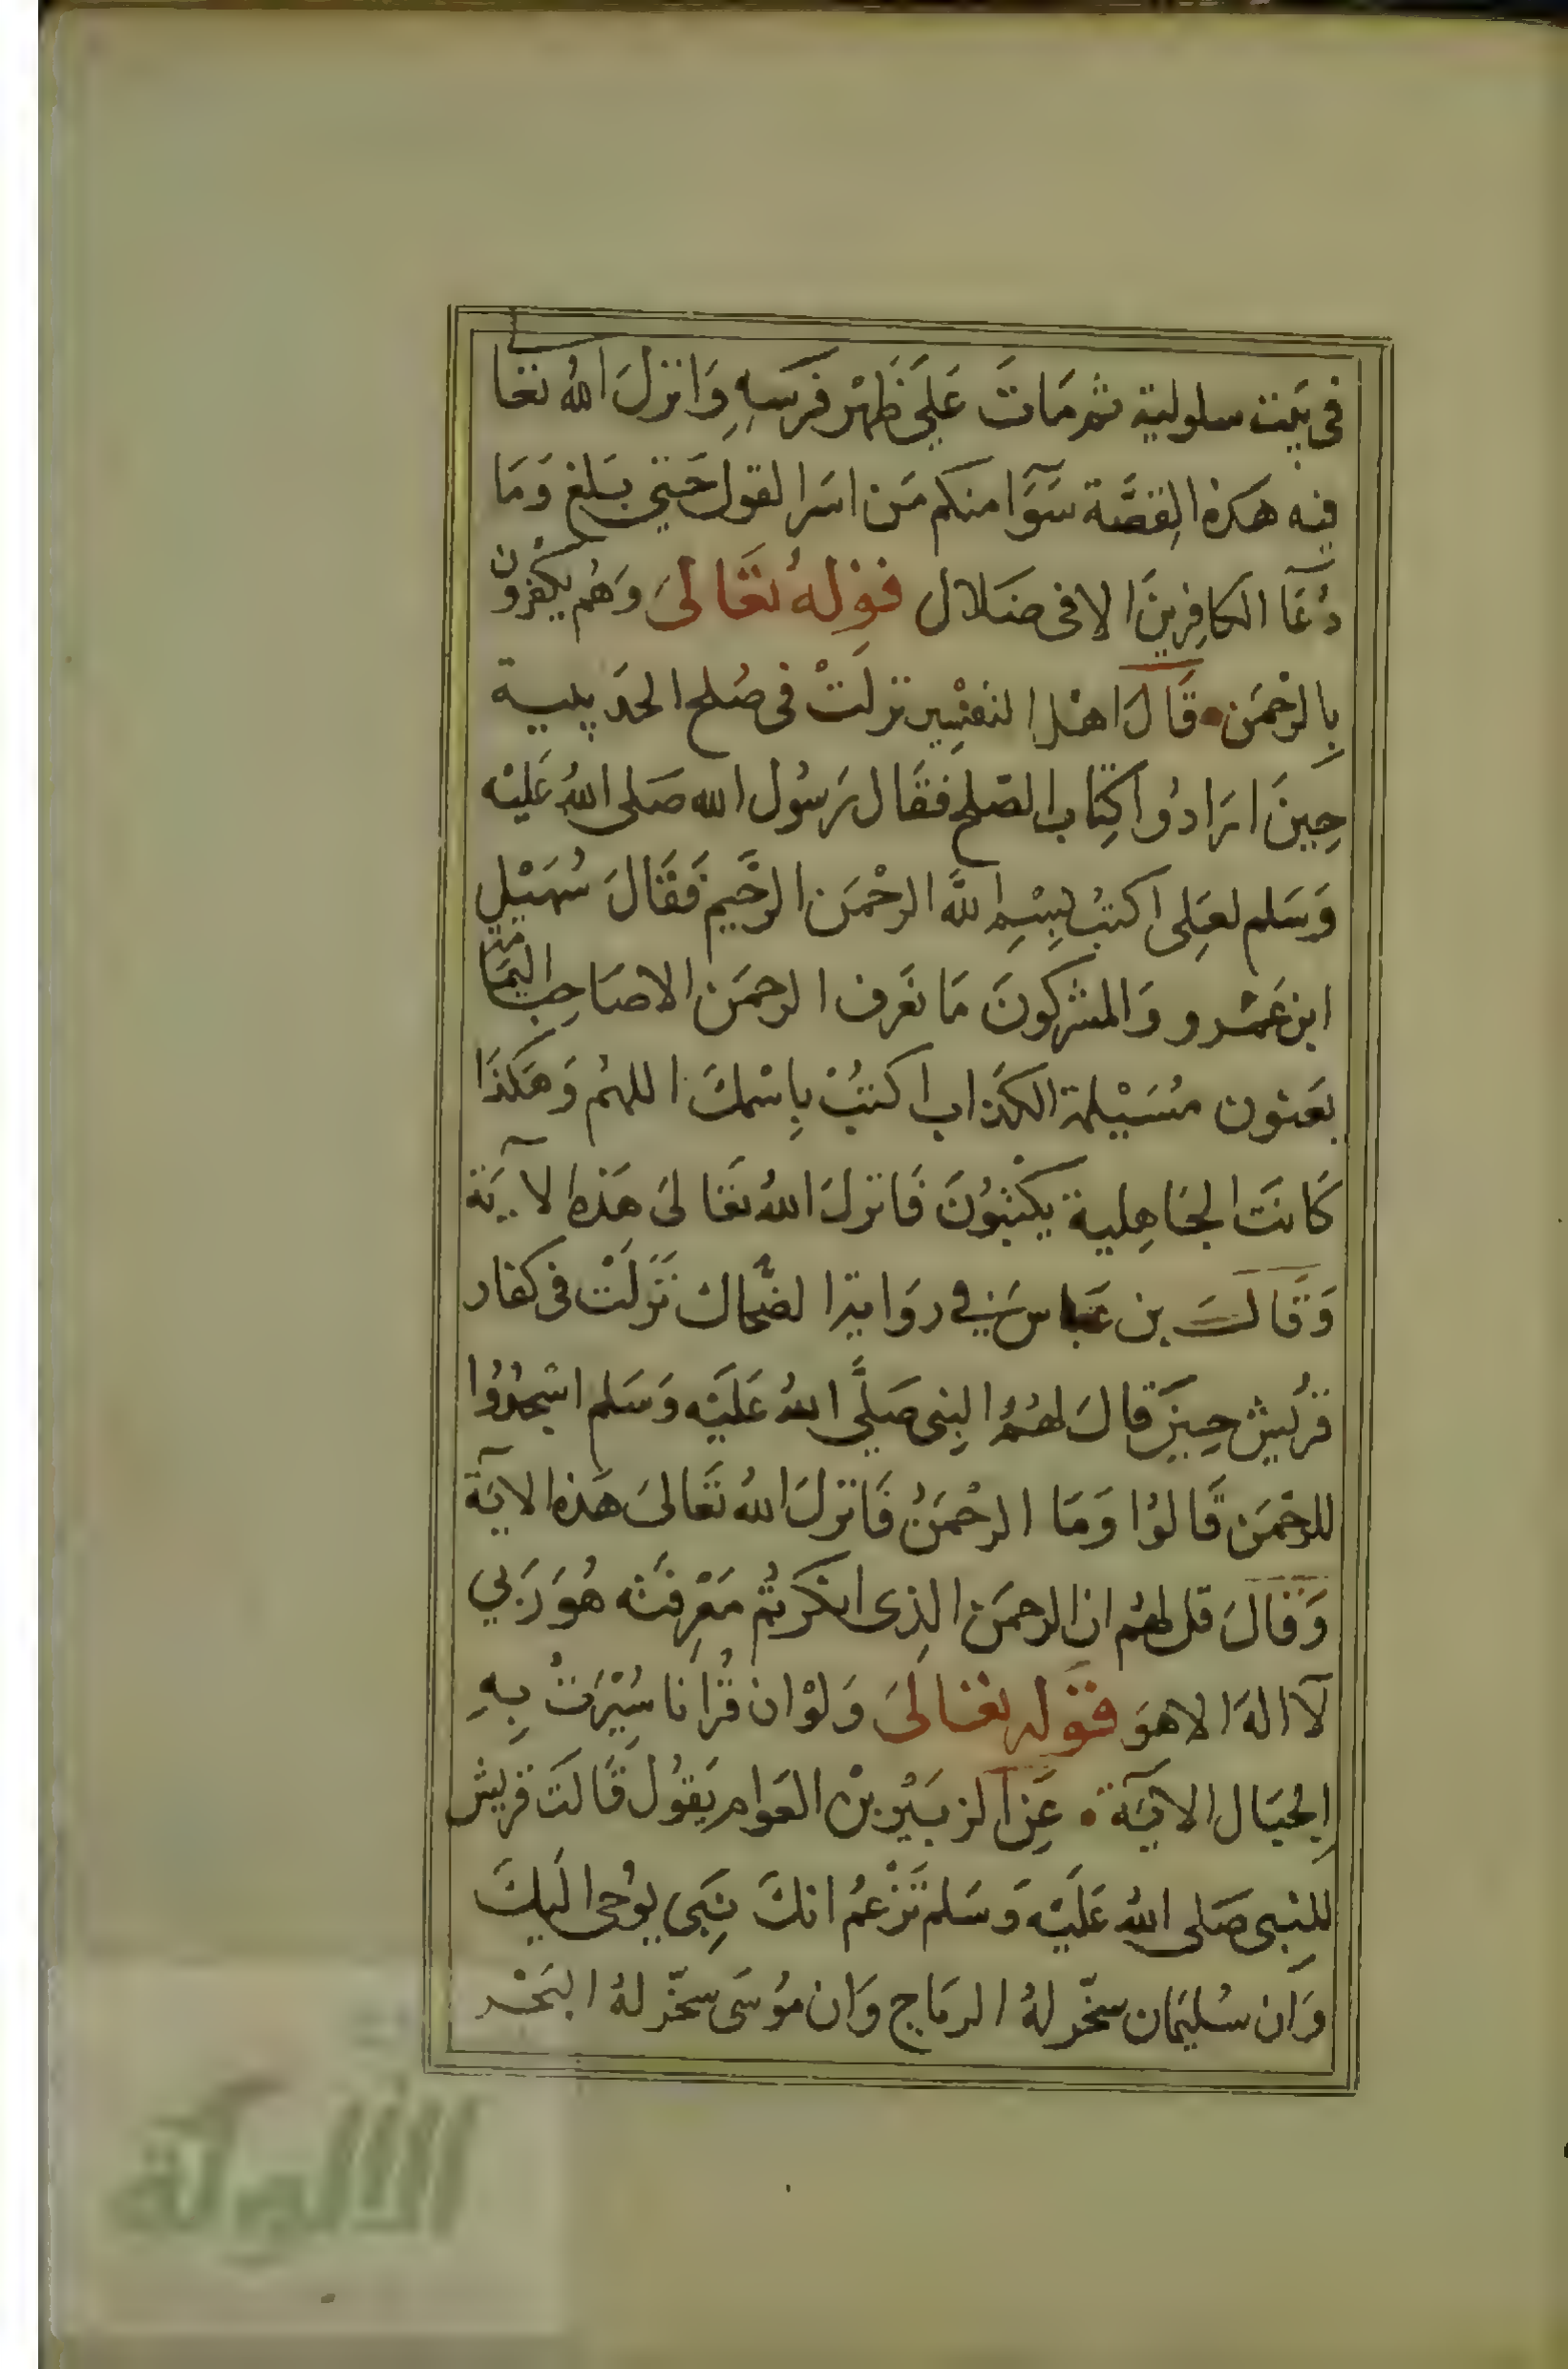 في بَيت سلولية ثم مَاتَ عَلَى ظَهْر فرَسِهِ وَانزلَ اللهُ تعالى
فيه هَذه القِصَّة سَوَآ منكم مَن اسَرا لقول حَتى بَلغ وَمَا
دُعَآ الكافِرينَ الا فى ضَلال قوْلهُ تعَالىَ وَهُم يكفرُون
بِالرحْمَن قَالَ اهْل التفسِير نزلَتْ في صُلح الحدَيبية
حِينَ ارَادُوا كِتاب الصّلح فقَال رَسُول الله صَلى اللهُ عَليْه
وَسَلم لعَلِى اكتبْ بِسْمِ اللَّه الرحْمَن الرحَيم فَقَالَ سُهَيْل
ابن عَمْرو وَالمشركونَ مَا نعَرف الرحمَن الاصَاحِب اليمَامَة
يعَنون مُسَيْلمة الكذاب اكتبْ بِاسْمكَ اللهُم وَهَكذَا
كَانتَ الجاهِلية يكتبُونَ فَانزلَ اللهُ تعَالىَ هَذه الآيَة
وَقَالَ بن عَباس في روَاية الضَّحاك نَزَلَتْ فى كفار
قرُيش حِينَ قالَ لهُمُ النِبى صَلَّى اللهُ عَليَه وَسَلم اسْجُدُوا
للرحْمَن قَالوُا وَمَا الرحْمَنُ فَانزلَ اللهُ تَعالىَ هَذه الآيَة
وَقالَ قل لهُم ان الرحمَن الذِى انكرتُم مَعْرِفتَه هُوَ رَبي
لآ الهَ الا هوَ قوَله تعَالىَ وَلوْ ان قُرانا سُيْرَتْ بِهِ
الجبَال الآيَة عَنِ الزبَيْر بنْ العَوام يَقوُل قَالتَ قريش
للنِبى صَلى اللهُ عَليَه وَسَلم تَزْعمُ انكَ نِبَى يوُحى اليكَ
وَان سُليَمان سخّر لهُ الرياح وَان موُسَى سخّر لهُ البَحْر
الألوكة